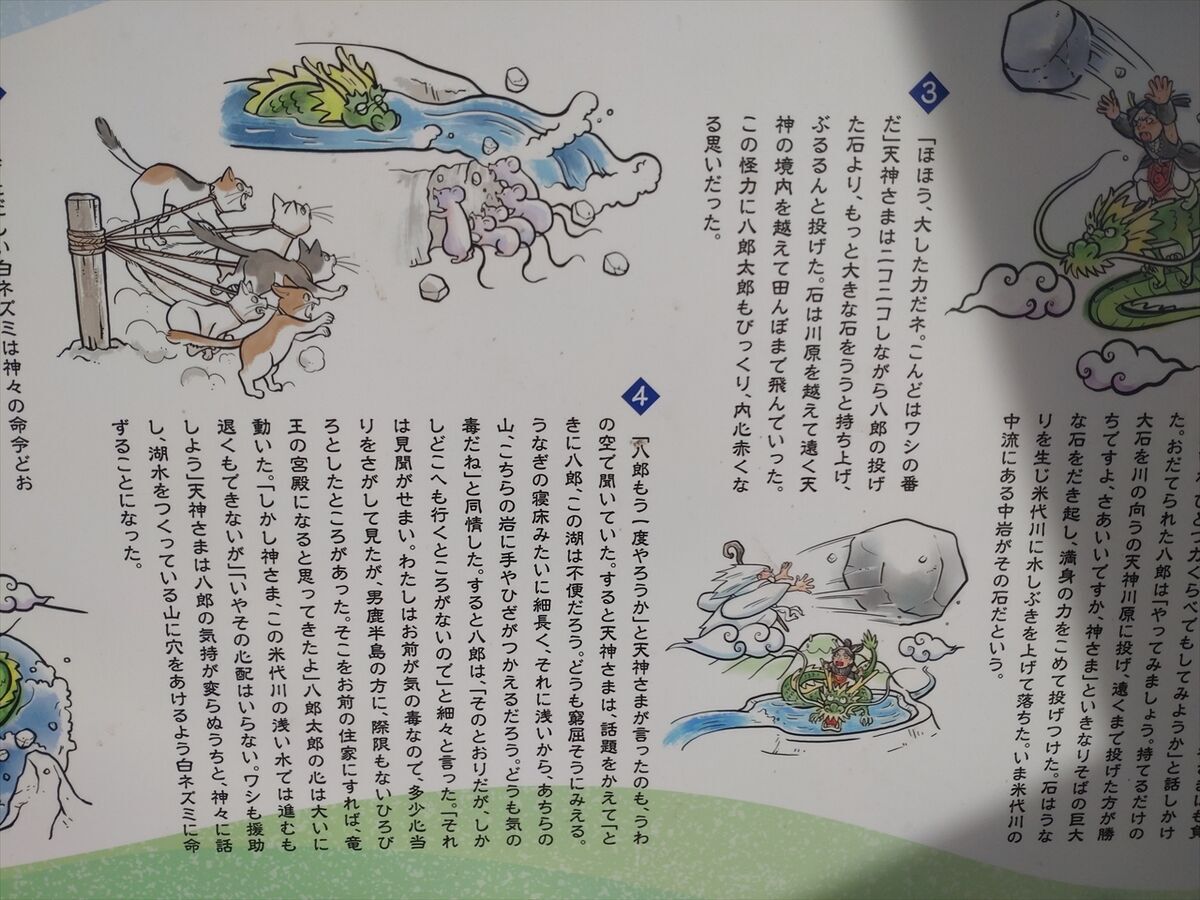 た。おだてられた八郎は「やってみましょう。持てるだけの
大石を川の向うの天神川原に投げ、遠くまで投げた方が勝
ちですよ、さあいいですか、神さま」といきなりそばの巨大
な石をだき起し、満身の力をこめて投げつけた。石はうな
りを生じ米代川に水しぶきを上げて落ちた。いま米代川の
中流にある中岩がその石だという。
3
「ほほう、大した力だネ。こんどはワシの番
だ」天神さまはニコニコしながら八郎の投げ
た石より、もっと大きな石をううと持ち上げ、
ぶるるんと投げた。石は川原を越えて遠く天
神の境内を越えて田んぼまで飛んでいった。
この怪力に八郎太郎もびっくり、内心赤くな
る思いだった。
4
「八郎もう一度やろうか」と天神さまが言ったのも、うわ
の空で聞いていた。すると天神さまは、話題をかえて「と
きに八郎、この湖は不便だろう。どうも窮屈そうにみえる。
うなぎの寝床みたいに細長く、それに浅いから、あちらの
山、こちらの岩に手やひざがつかえるだろう。どうも気の
毒だね」と同情した。すると八郎は、「そのとおりだが、しか
しどこへも行くところがないので」と細々と言った。「それ
は見聞がせまい。わたしはお前が気の毒なので、多少心当
りをさがして見たが、男鹿半島の方に、際限もないひろび
ろとしたところがあった。そこをお前の住家にすれば、竜
王の宮殿になると思ってきたよ」八郎太郎の心は大いに
動いた。「しかし神さま、この米代川の浅い水では進むも
退くもできないが」「いやその心配はいらない。ワシも援助
しよう」天神さまは八郎の気持が変らぬうちと、神々に話
し、湖水をつくっている山に穴をあけるよう白ネズミに命
ずることになった。
白ネズミは神々の命令どお